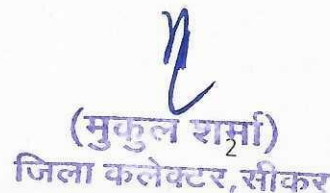 (मुकुल शर्मा)
2
जिला कलेक्टर, सीकर